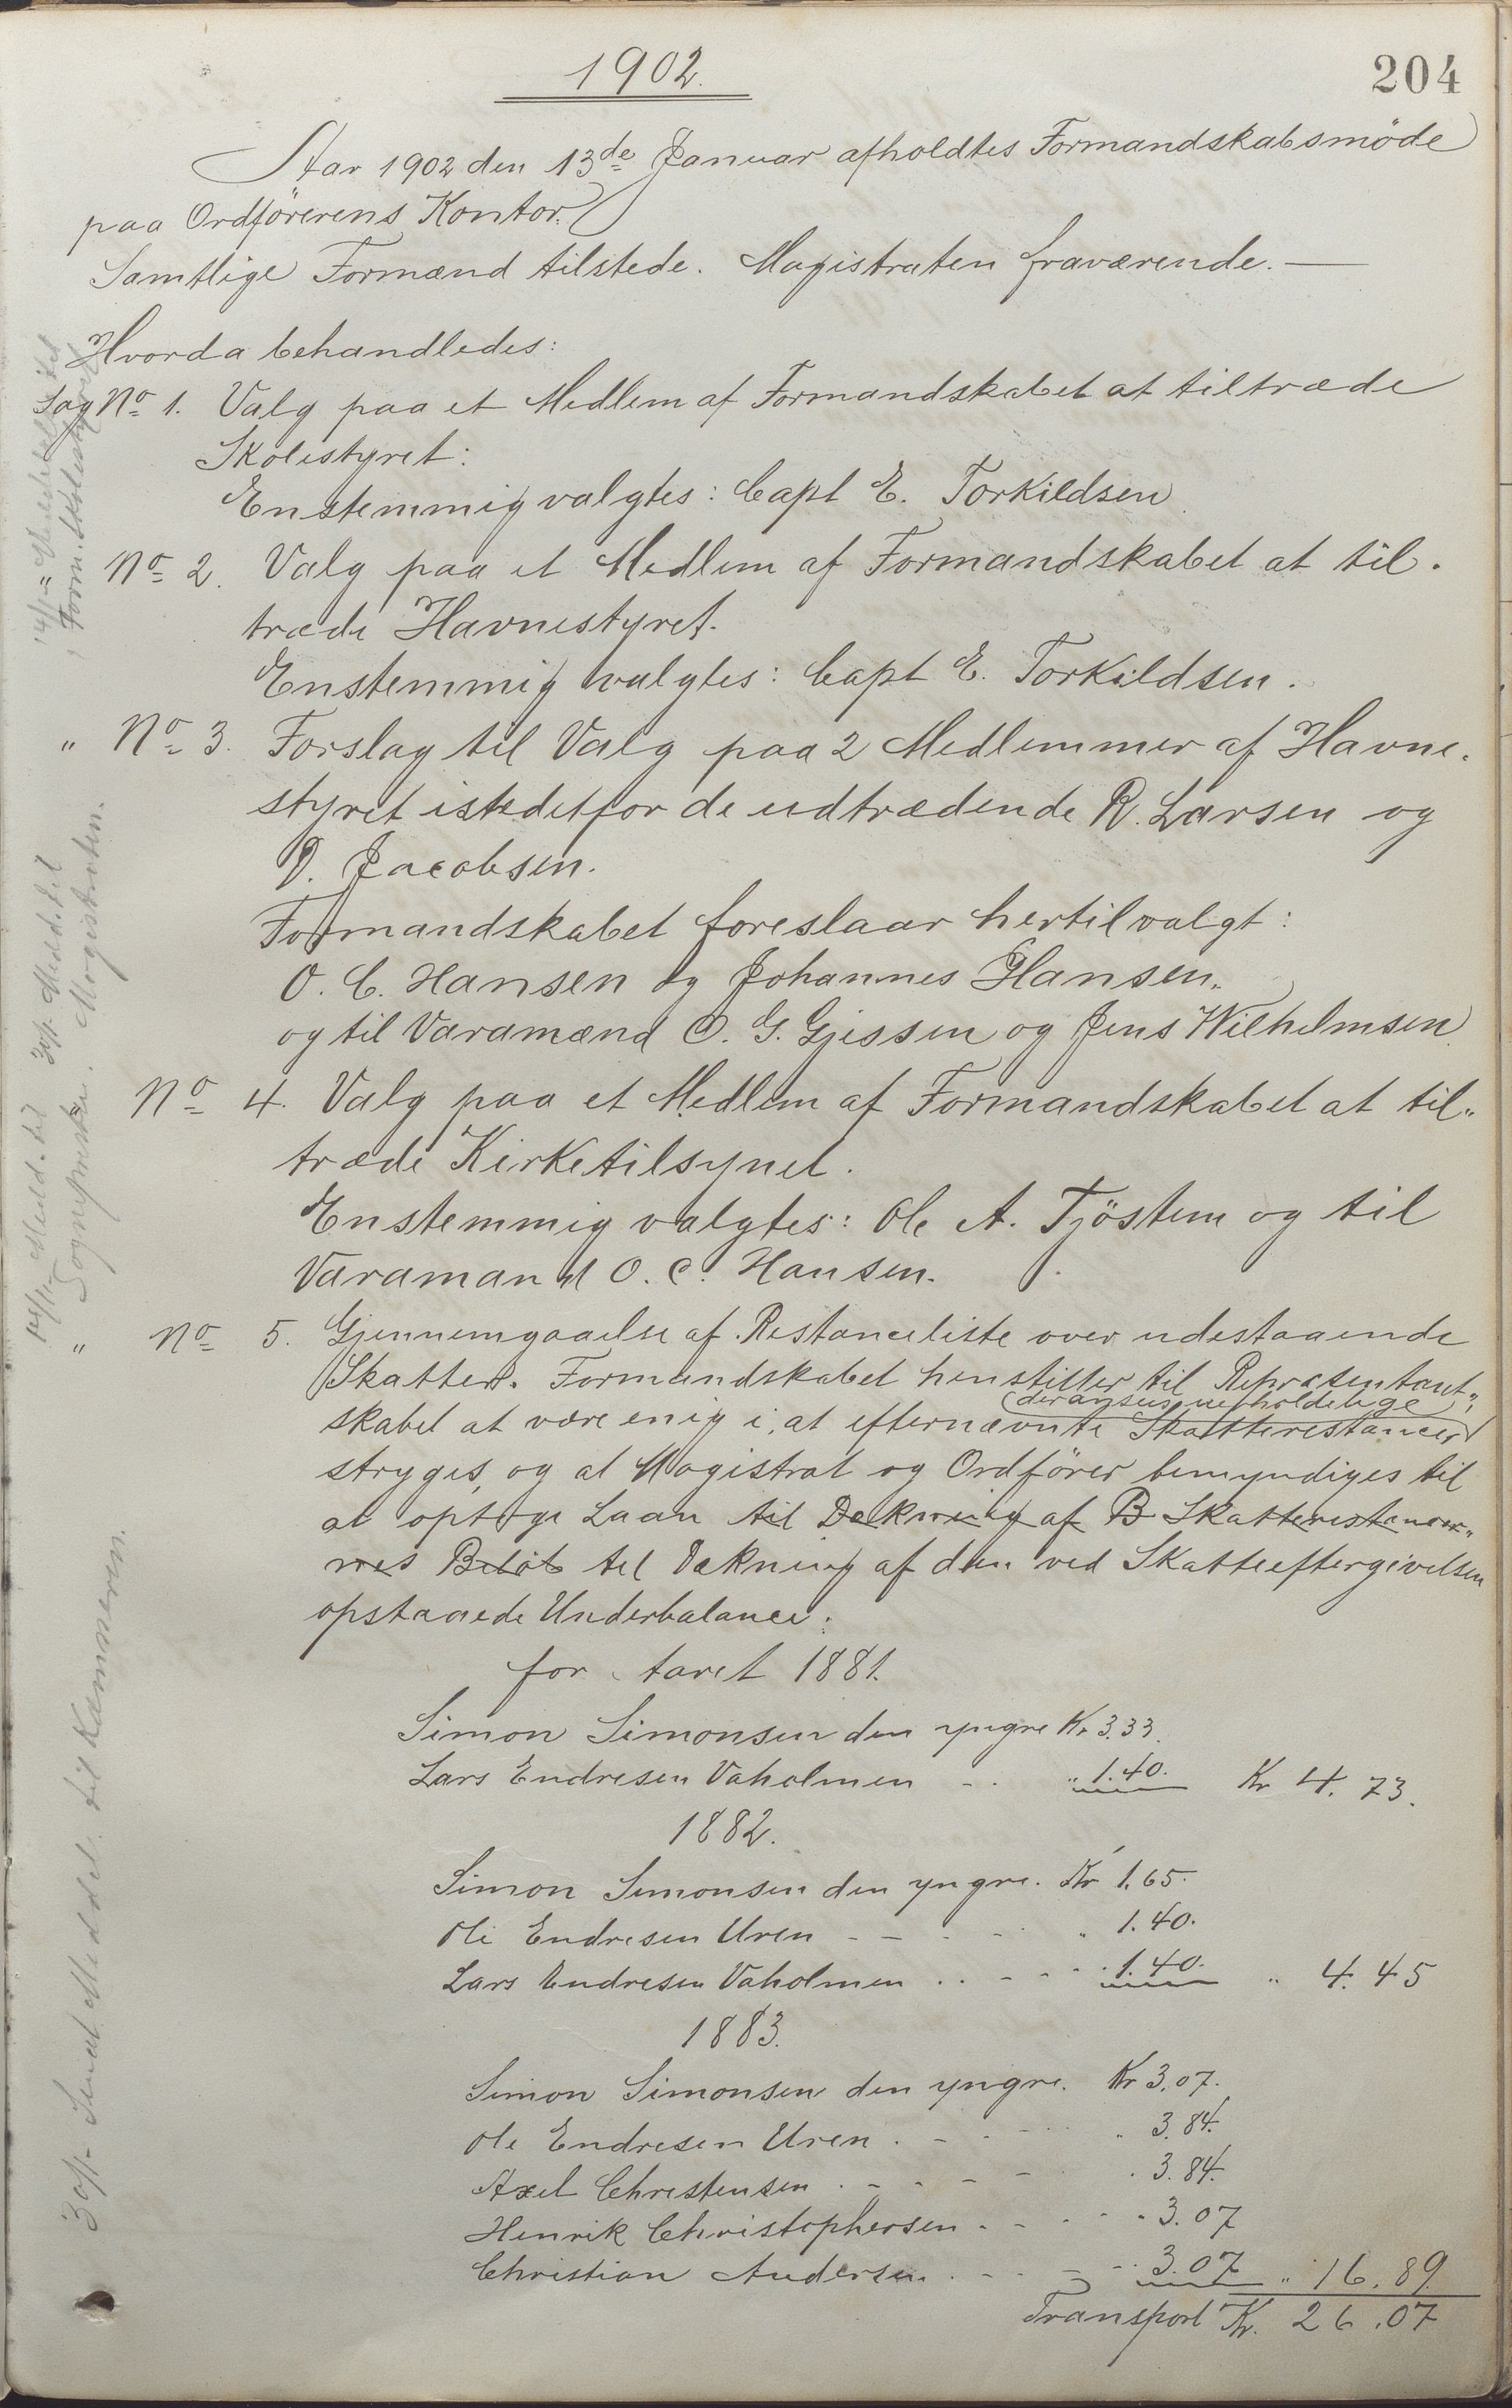 1902.
204
Aar 1902 den 13de Januar afholdtes Formandskabsmöde
paa Ordförerens Kontor.
Samtlige Formænd tilstede. Magistraten fraværende. —
Hvorda behandledes:
Sag No 1. Valg paa et Medlem af Formandskabet at tiltræde
Skolestyret:
Enstemmig valgtes: Capt E. Torkildsen
No 2. Valg paa et Medlem af Formandskabet at til-
træde Havnestyret.
Enstemmig valgtes: Capt E. Torkildsen.
" No 3. Forslag til Valg paa 2 Medlemmer af Havne-
styret istedetfor de udtrædende R. Larsen og
D. Jacobsen.
Formandskabet foreslaar hertil valgt:
O. C. Hansen og Johannes Hansen.
og til Varamænd O. G. Gjessen og Jens Wilhelmsen
No 4. Valg paa et Medlem af Formandskabet at til-
træde Kirketilsynet.
Enstemmig valgtes: Ole A. Tjöstem og til
Varamand O. C. Hansen.
" No 5. Gjennemgaaelse af Restanceliste over udestaaende
Skatter. Formandskabet henstiller til Repræsentant-
der ansees uerholdelige
skabet at være enig i, at efternævnte Skatterestancer
stryges, og at Magistrat og Ordförer bemyndiges til
at optage Laan til Dækning af B Skatterestancer-
nes Belöb til Dækning af den ved Skatteeftergivelsen
opstaaede Underbalance:
for Aaret 1881.
Simon Simonsen den yngre Kr 3.33.
Lars Endresen Vaholmen - - " 1.40. Kr 4.73.
1882.
Simon Simonsen den yngre. Kr 1.65.
Ole Endresen Uren - - - - " 1.40.
Lars Endresen Vaholmen . . - - - 1.40. " 4.45
1883.
Simon Simonsen den yngre. Kr 3.07.
Ole Endresen Uren . - - - " 3.84.
Axel Christensen . - - - - . 3.84.
Henrik Christophersen - - - - " 3.07
Christian Andersen . - - - - 3.07 " 16.89.
Transport Kr. 26.07
14/1 " Meddelelse til
Form. Skolestyret
14/1 Medd. til
Sognepresten.
30/1. Medd. til
Magistraten.
30/1- Sendt Meddel. til Kæmneren.